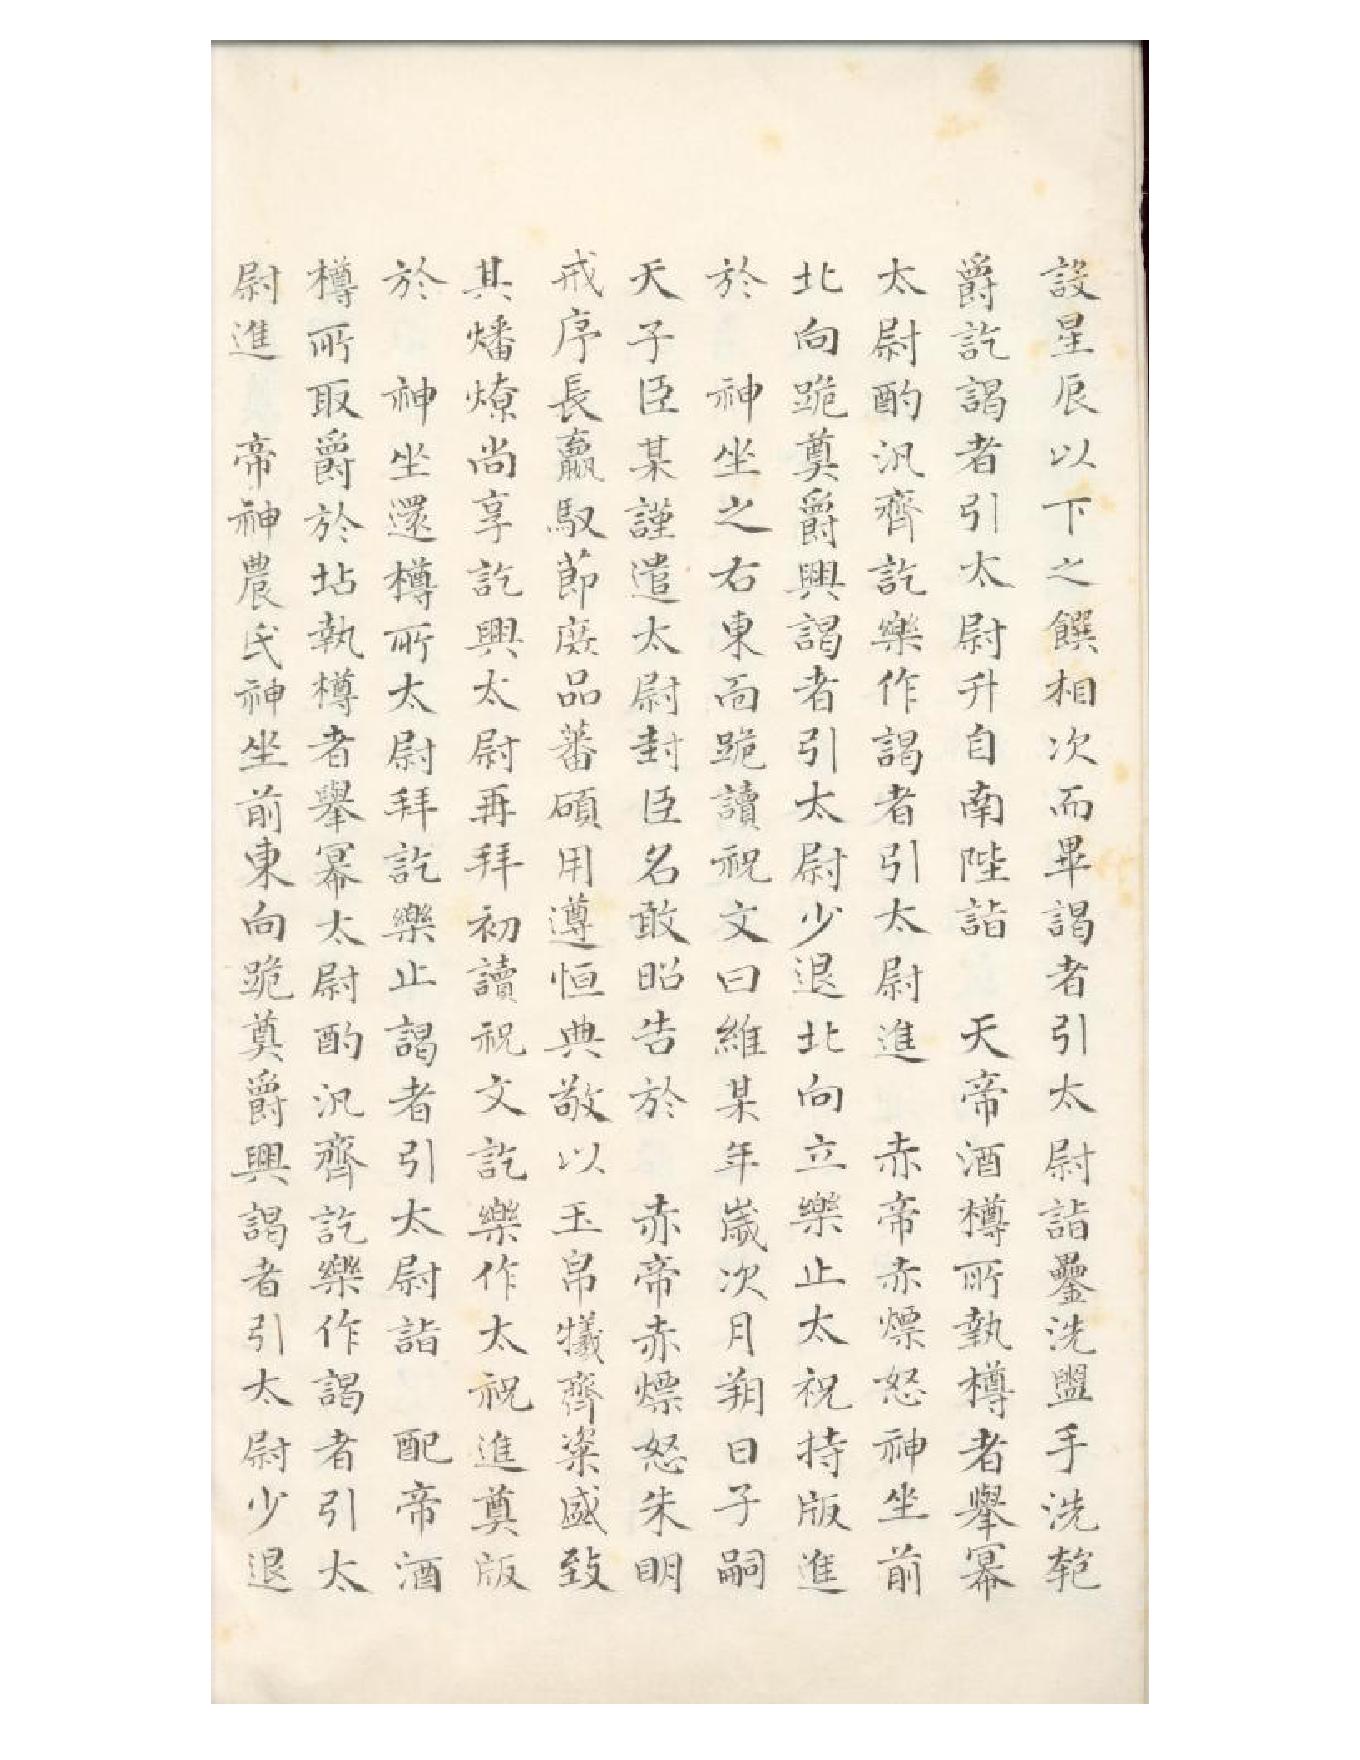 設星辰以下之饌相次而畢謁者引太尉詣罍洗盥手洗匏
爵訖謁者引太尉升自南陛詣　天帝酒樽所執樽者舉冪
太尉酌汎齊訖樂作謁者引太尉進　赤帝赤熛怒神坐前
北向跪奠爵興謁者引太尉少退北向立樂止太祝持版進
於　神坐之右東面跪讀祝文曰維某年歲次月朔日子嗣
天子臣某謹遣太尉封臣名敢昭告於　赤帝赤熛怒朱明
戒序長嬴馭節庶品蕃碩用遵恒典敬以玉帛犧齊粢盛致
其燔燎尚享訖興太尉再拜初讀祝文訖樂作太祝進奠版
於　神坐還樽所太尉拜訖樂止謁者引太尉詣　配帝酒
樽所取爵於坫執樽者舉冪太尉酌汎齊訖樂作謁者引太
尉進　帝神農氏神坐前東向跪奠爵興謁者引太尉少退